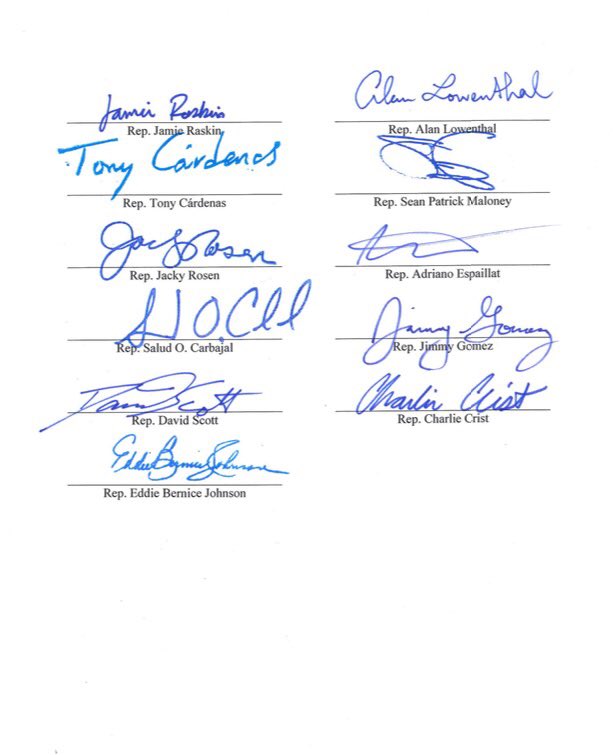 Jamie Raskin
Rep. Jamie Raskin
Tony Cárdenas
Rep. Tony Cárdenas
Jacky Rosen
Rep. Jacky Rosen
Rep. Salud O. Carbajal
David Scott
Rep. David Scott
Eddie Bernice Johnson
Rep. Eddie Bernice Johnson
Alan Lowenthal
Rep. Alan Lowenthal
Rep. Sean Patrick Maloney
Rep. Adriano Espaillat
Jimmy Gomez
Rep. Jimmy Gomez
Charlie Crist
Rep. Charlie Crist